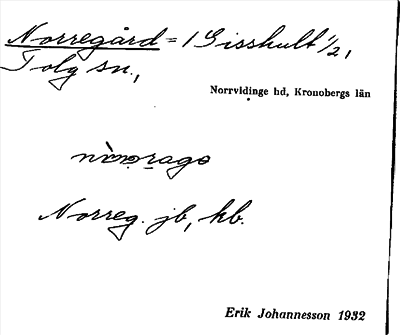 Norregård = 1 Gisshult 1/2,
Tolg sn.,
Norrvidinge hd, Kronobergs län
Norreg. jb, kb.
Erik Johannesson 1932